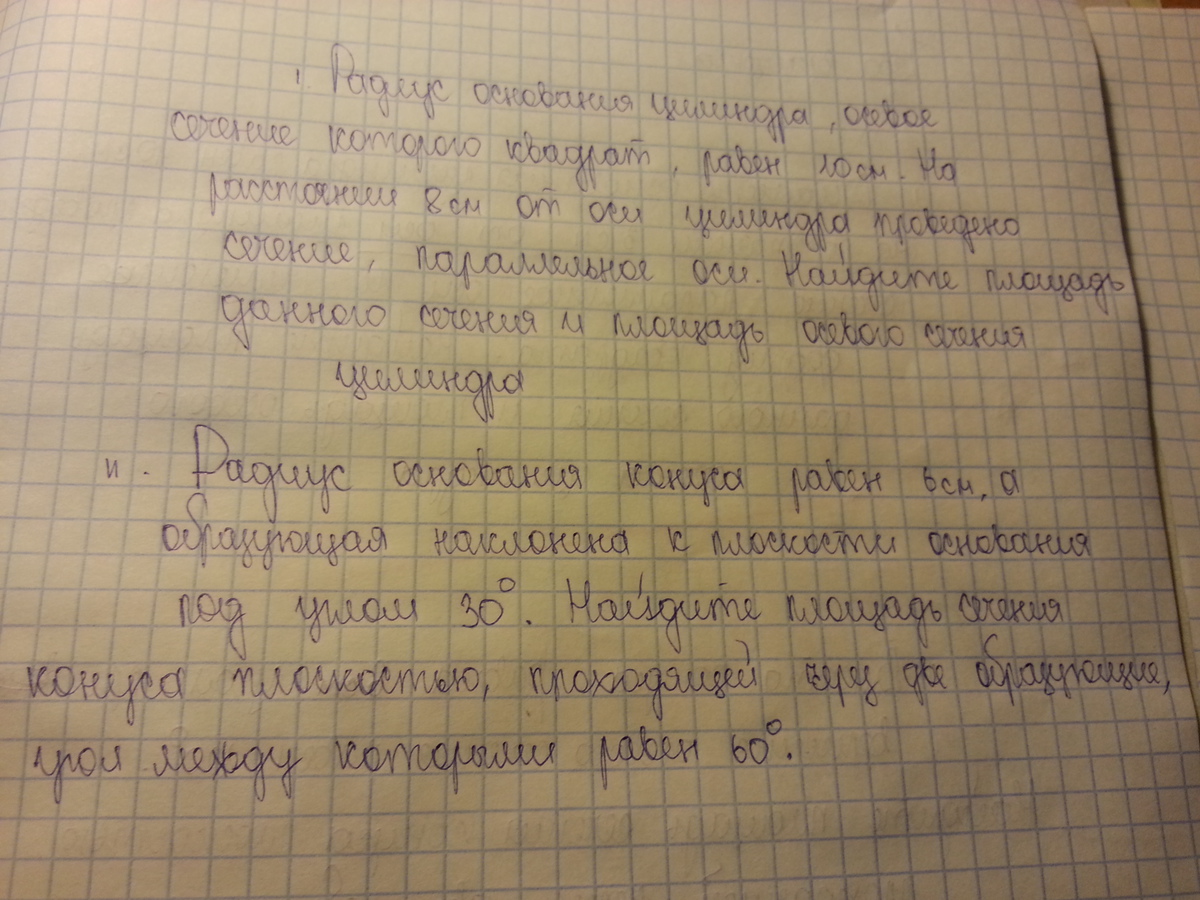 1. Радиус основания цилиндра, осевое
сечение которого квадрат, равен 10 см. На
расстоянии 8 см от оси цилиндра проведено
сечение, параллельное оси. Найдите площадь
данного сечения и площадь осевого сечения
цилиндра
и. Радиус основания конуса равен 6 см, а
образующая наклонена к плоскости основания
под углом 30°. Найдите площадь сечения
конуса плоскостью, проходящей через две образующие,
угол между которыми равен 60°.